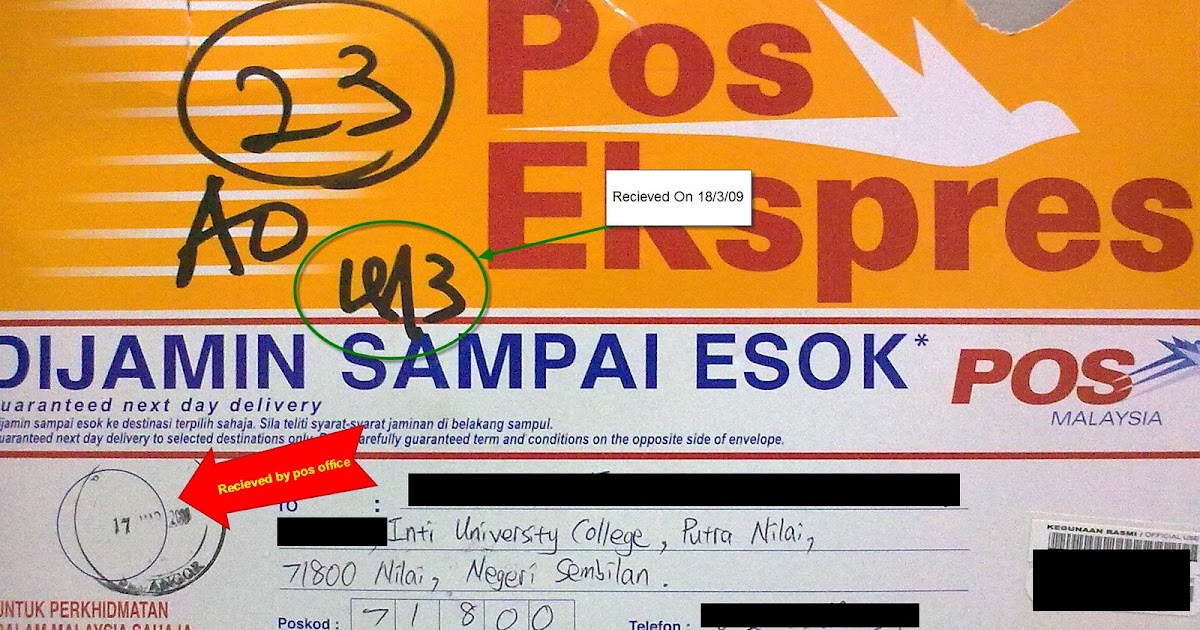 23
Pos
Ekspres
AO
Recieved On 18/3/09
DIJAMIN SAMPAI ESOK*
uaranteed next day delivery
ijamin sampai esok ke destinasi terpilih sahaja. Sila teliti syarat-syarat jaminan di belakang sampul.
uaranteed next day delivery to selected destinations only. carefully guaranteed term and conditions on the opposite side of envelope.
POS
MALAYSIA
Recieved by pos office
17
ANGOR
TO :
, Inti University College, Putra Nilai,
71800 Nilai, Negeri Sembilan.
KEGUNAAN RASMI / OFFICIAL USE
UNTUK PERKHIDMATAN
DALAM MALAYSIA SAHAJA
Poskod : 71800
Telefon :